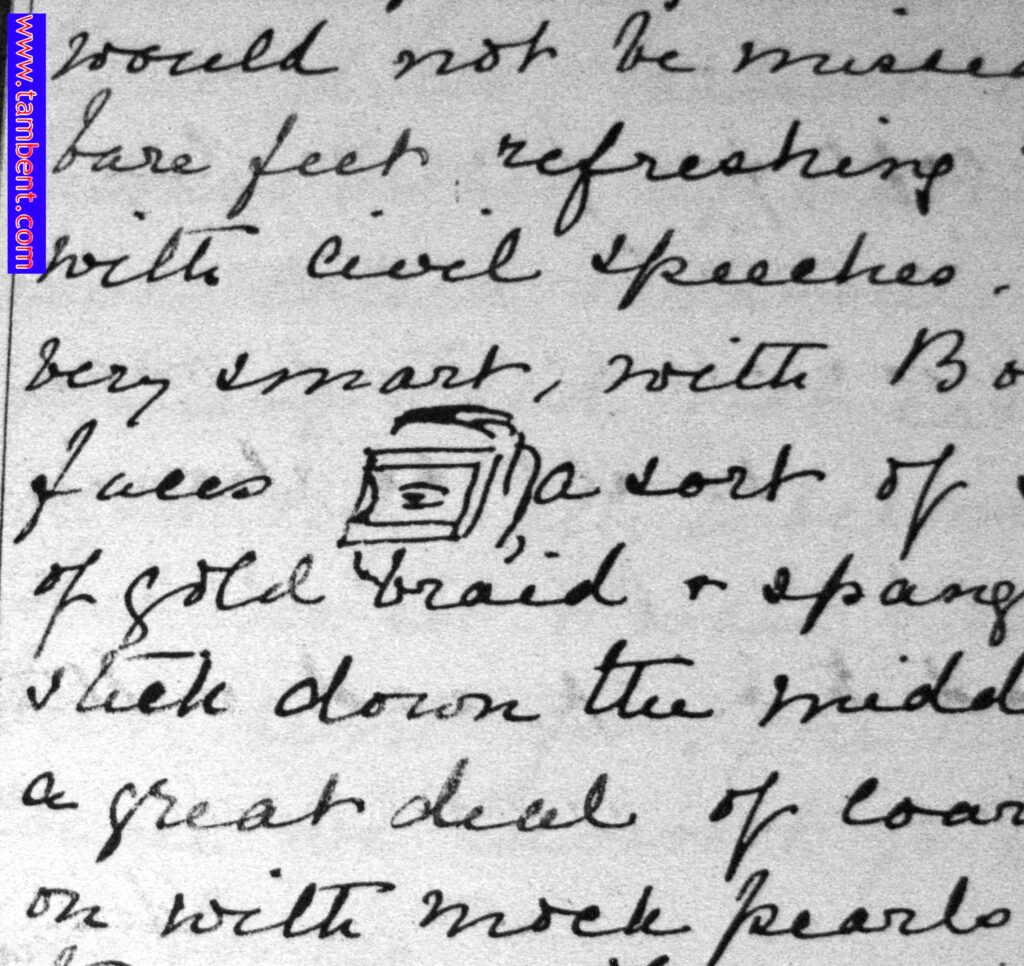 www.tambent.com
would not be missed
bare feet refreshing
with civil speeches.
very smart, with Bo
faces , a sort of s
of gold braid + spang
stick down the midd
a great deal of coar
on with mock pearls